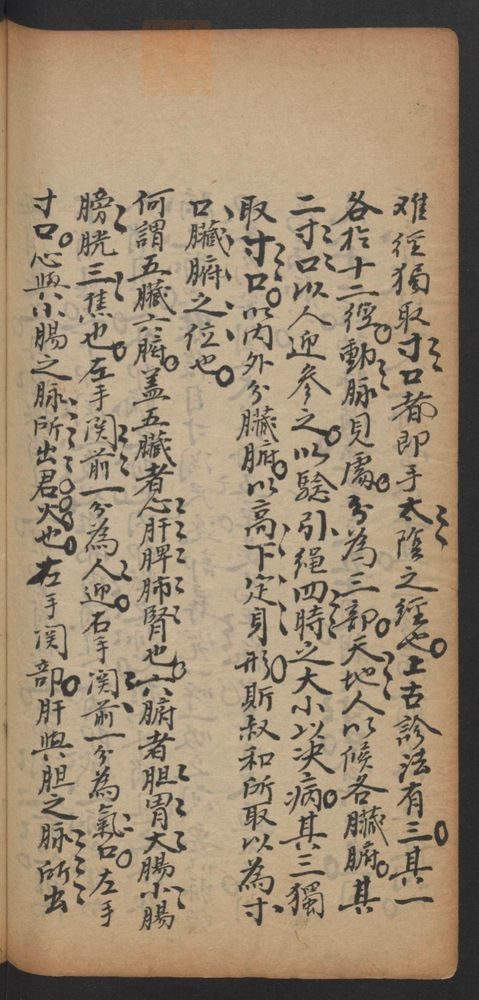 难經獨取寸口者即手太陰之經也上古診法有三其一
各於十二經動脉見處分為三部天地人以候各臟腑其
二寸口以人迎參之以驗引繩四時之大小以决病其三獨
取寸口以内外分臟腑以高下定身形斯叔和所取以為寸
口臟腑之位也
何謂五臟六腑盖五臟者心肝脾肺腎也六腑者胆胃大腸小腸
膀胱三焦也左手関前一分為人迎右手関前一分為氣口左手
寸口心與小腸之脉所出君火也左手関部肝與胆之脉所出